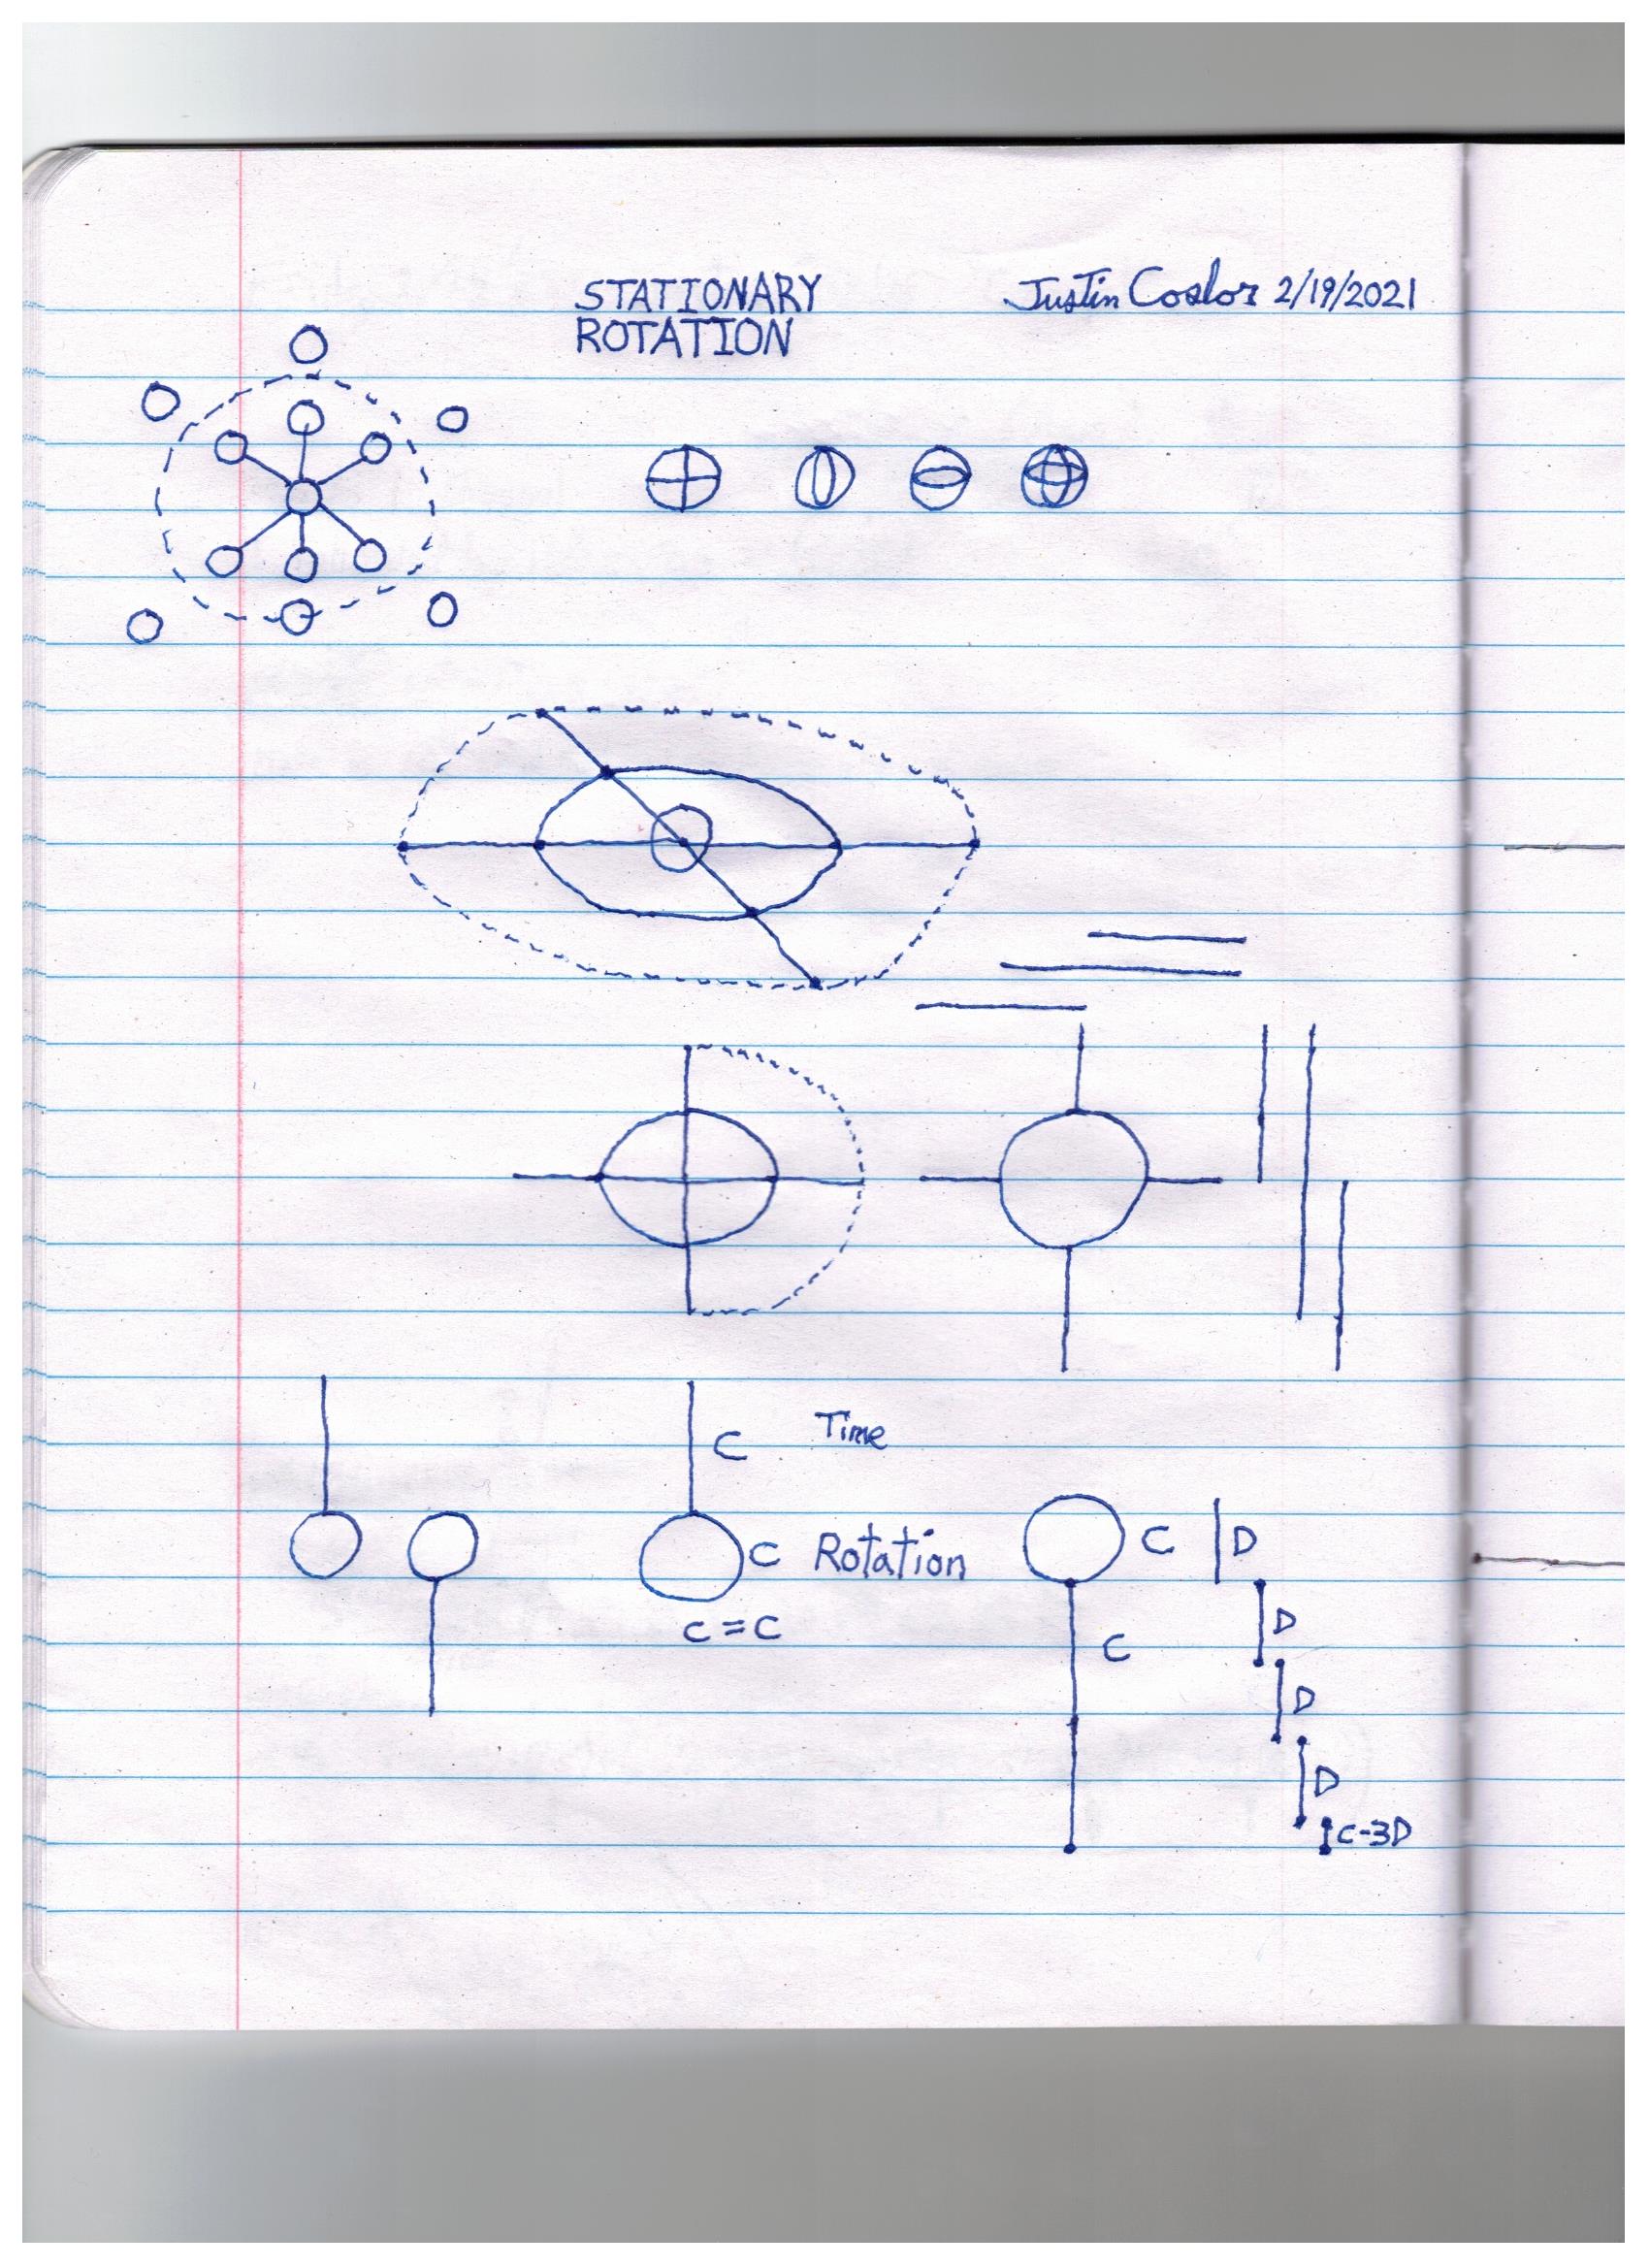 STATIONARY
ROTATION
Justin Coslor 2/19/2021
C Time
C Rotation
C = C
C D
C D
D
D
C-3D